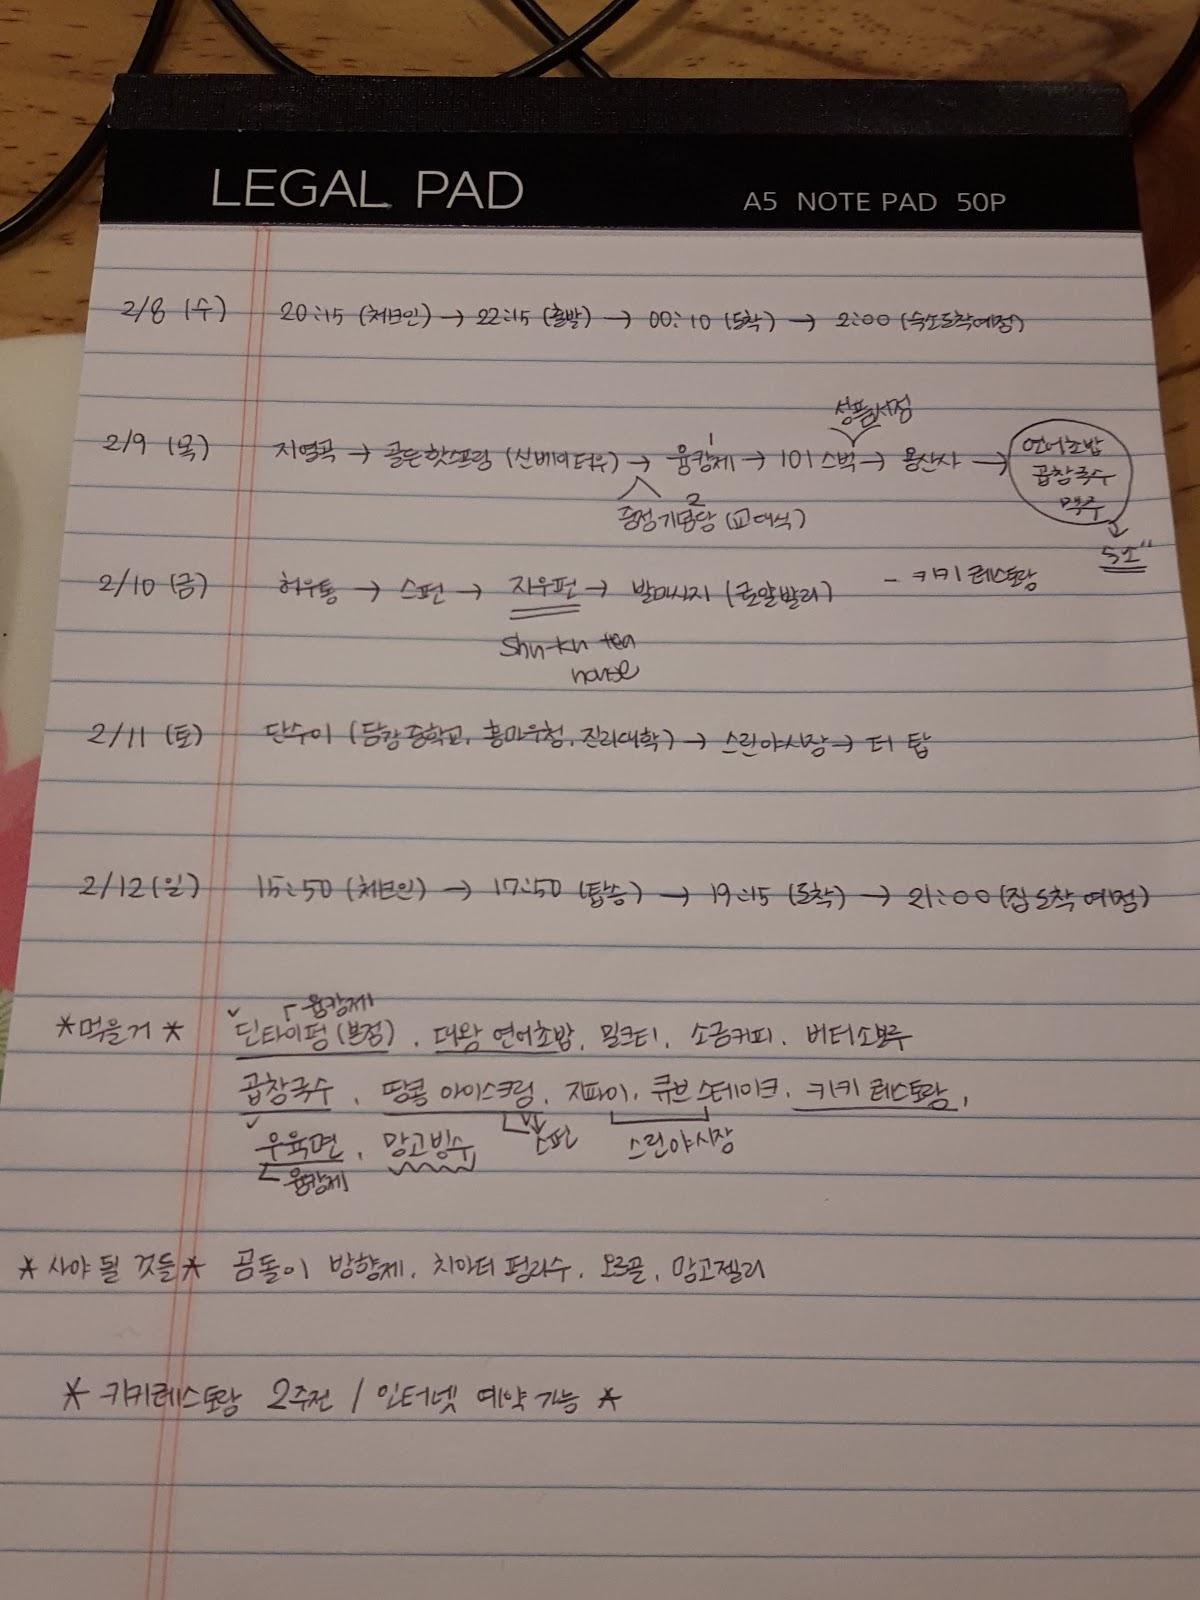 LEGAL PAD
A5 NOTE PAD 50P
2/8 (수) 20:15 (체크인) → 22:15 (출발) → 00:10 (도착) → 2:00 (숙소도착예정)
성품서점
2/9 (목) 지열곡 → 골든핫스프링 (신베이터우) → 융캉제 → 101 스벅 → 용산사 →
1
연어초밥
곱창국수
맥주
2
중정기념당 (교대식)
2/10 (금) 허우통 → 스펀 → 지우펀 → 발마사지 (로얄발리) - 키키 레스토랑
Shu-ku tea
house
2/11 (토) 단수이 (담강중학교, 홍마우청, 진리대학) → 스린야시장 → 터 탑
2/12 (일) 15:50 (체크인) → 17:50 (탑승) → 19:15 (도착) → 21:00 (집도착 예정)
융캉제
*먹을거* 딘타이펑 (본점), 대왕 연어초밥, 밀크티, 소금커피, 버터소보루
곱창국수, 땅콩 아이스크림, 지파이, 큐브 스테이크, 키키 레스토랑,
스펀 스린야시장
우육면, 망고빙수
융캉제
*사야 될 것들* 곰돌이 방향제, 치아더 펑리수, 오르골, 망고젤리
* 키키레스토랑 2주전 / 인터넷 예약 가능 *